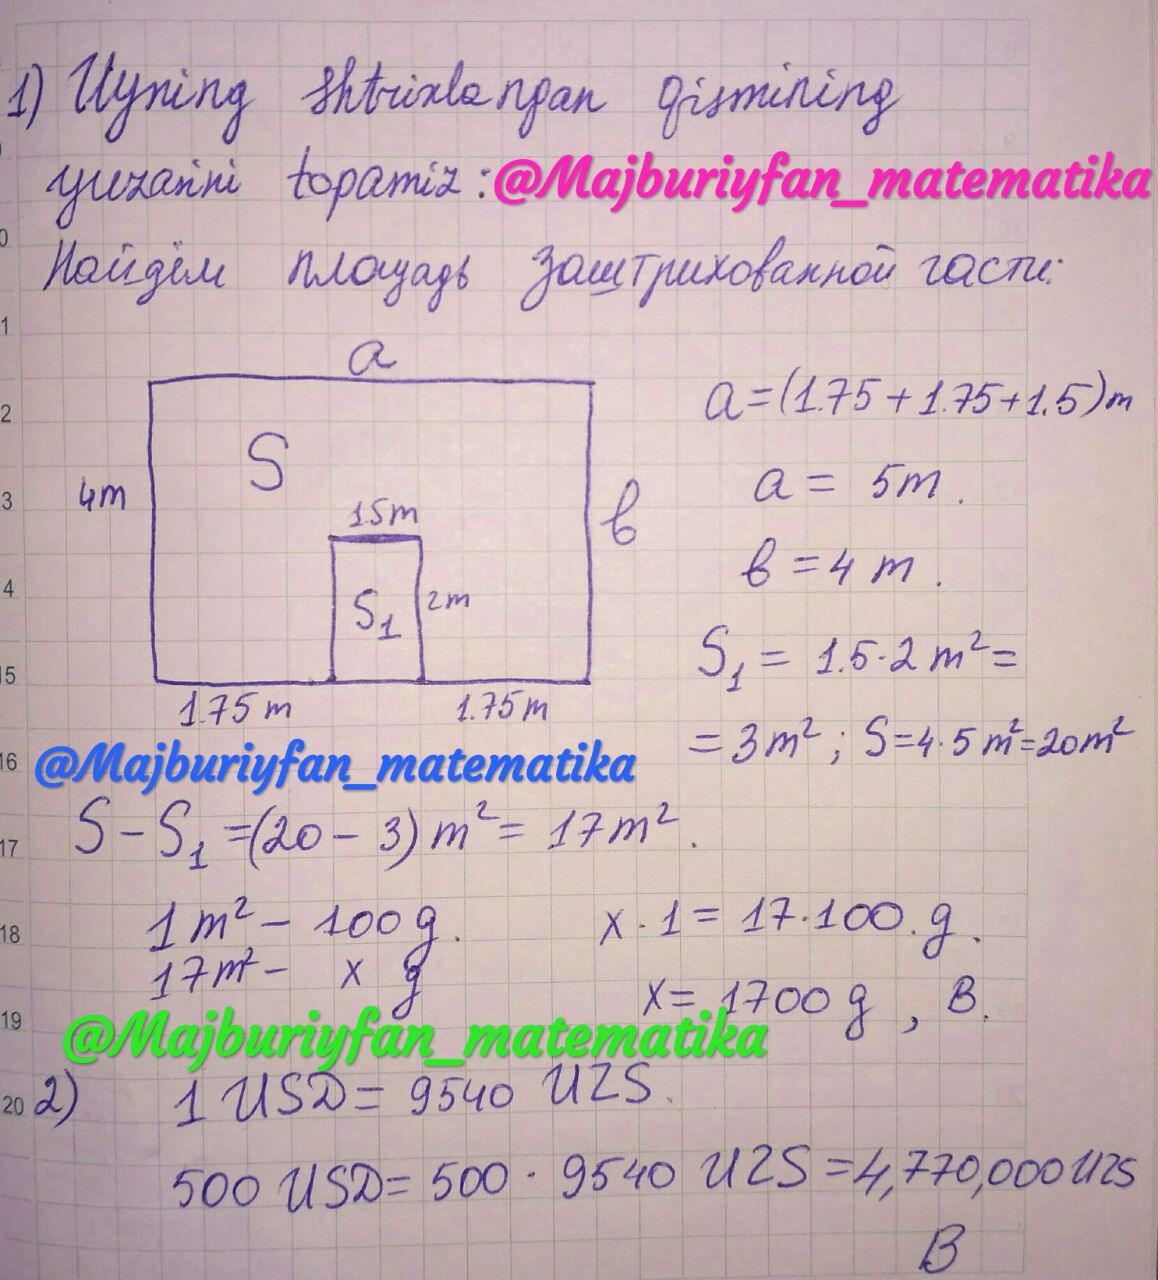 1) Uyning shtrixlangan qismining
yuzasini topamiz: @Majburiyfan_matematika
Найдём площадь заштрихованной части:
a
S
4m
1.5m
в
S₁
2m
1.75m
1.75m
a=(1.75+1.75+1.5)m
a= 5m.
в=4 m.
S₁ = 1.5·2 m²=
=3m²; S=4·5 m²=20m²
@Majburiyfan_matematika
S-S₁=(20-3)m²=17m².
1m²- 100g.
17m²- x g
x·1=17·100.g.
x=1700g, B.
@Majburiyfan_matematika
2) 1 USD=9540 UZS.
500 USD=500·9540 UZS=4,770,000UZS
B
1
2
3
4
15
16
17
18
19
20